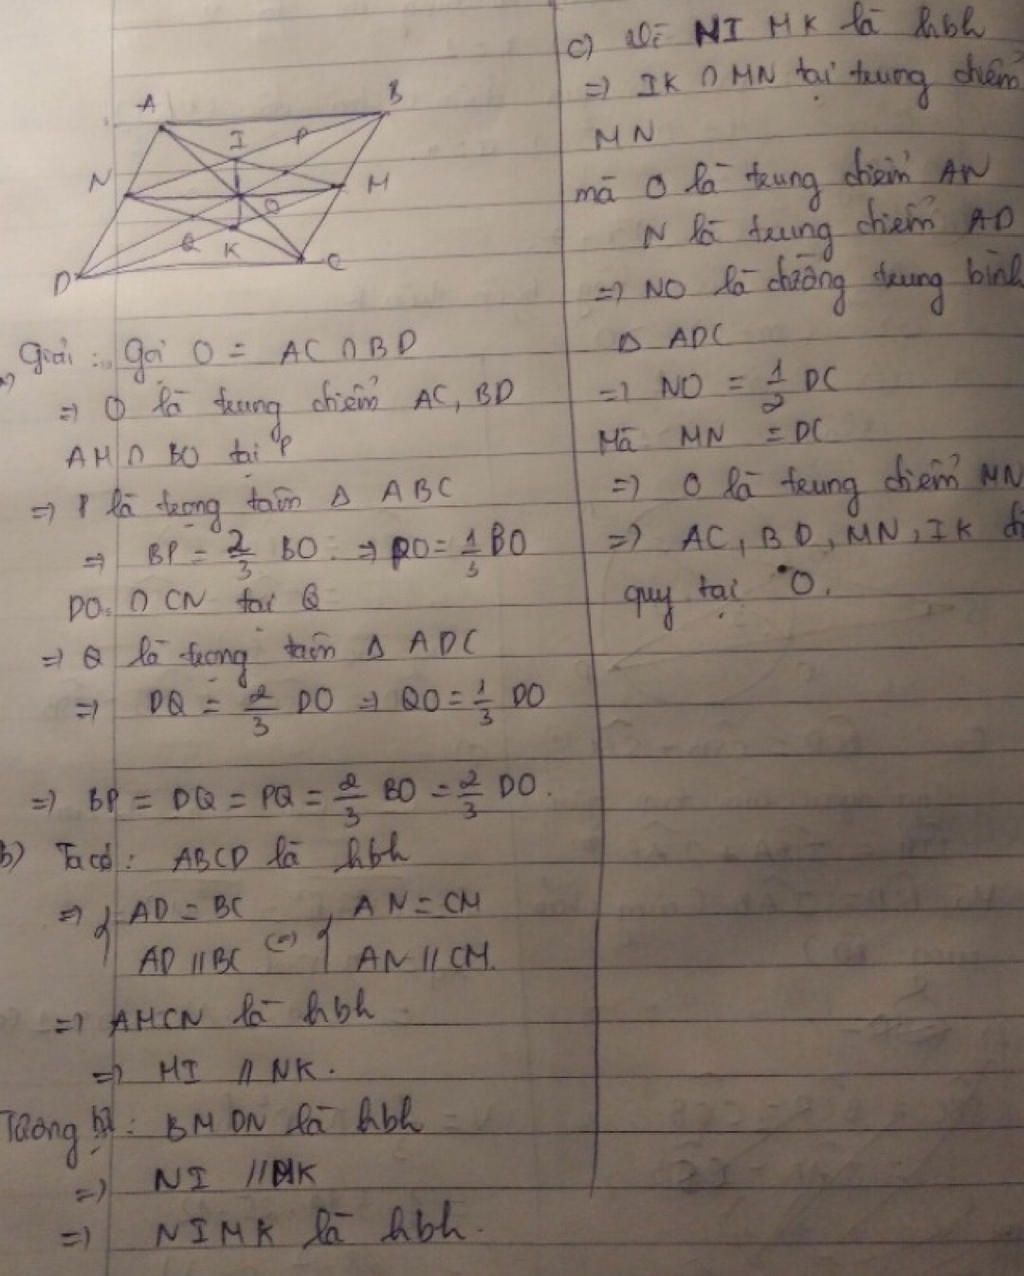 A
B
I
P
N
M
O
Q
K
D
C
Giải: Gọi O = AC ∩ BD
a)
=> O là trung điểm AC, BD
AM ∩ BO tại P
=> P là trọng tâm Δ ABC
=> BP = 2/3 BO => PO = 1/3 BO
DO ∩ CN tại Q
=> Q là trọng tâm Δ ADC
=> DQ = 2/3 DO => QO = 1/3 DO
=> BP = DQ = PQ = 2/3 BO = 2/3 DO.
b) Ta có: ABCD là hbh
=> { AD = BC { AN = CM
AD // BC (=) AN // CM.
=> AMCN là hbh
=> MI // NK.
Tương tự: BMDN là hbh
=> NI // MK
=> NIMK là hbh.
c) Vì NIMK là hbh
=> IK ∩ MN tại trung điểm
MN
mà O là trung điểm AN
N là trung điểm AD
=> NO là đường trung bình
Δ ADC
=> NO = 1/2 DC
Mà MN = DC
=> O là trung điểm MN
=> AC, BD, MN, IK đ
quy tại O.